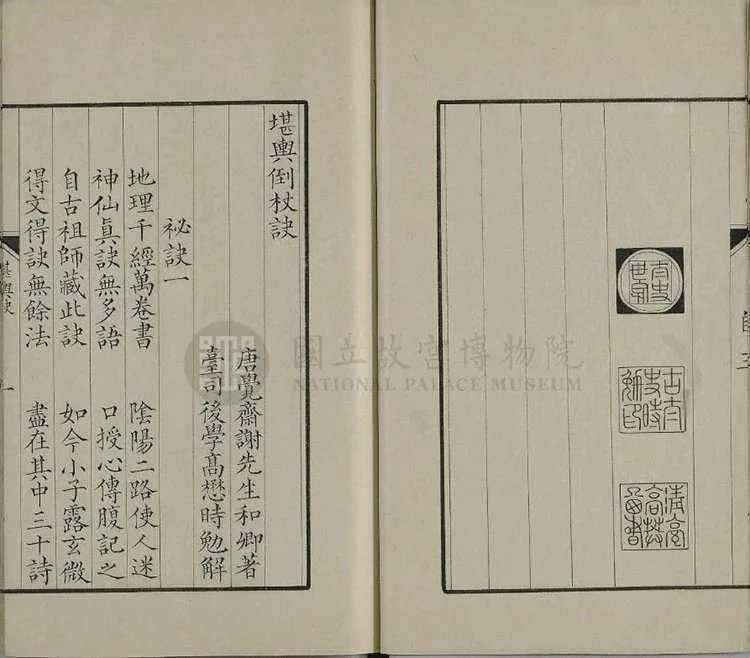 太史世家
堪輿倒杖訣
唐覺齋謝先生和卿著
臺司後學高懋時勉解
祕訣一
地理千經萬卷書 陰陽二路使人迷
神仙眞訣無多語 口授心傳腹記之
自古祖師藏此訣 如今小子露玄微
得文得訣無餘法 盡在其中三十詩
堪輿訣 一
國立故宮博物院
NATIONAL PALACE MUSEUM